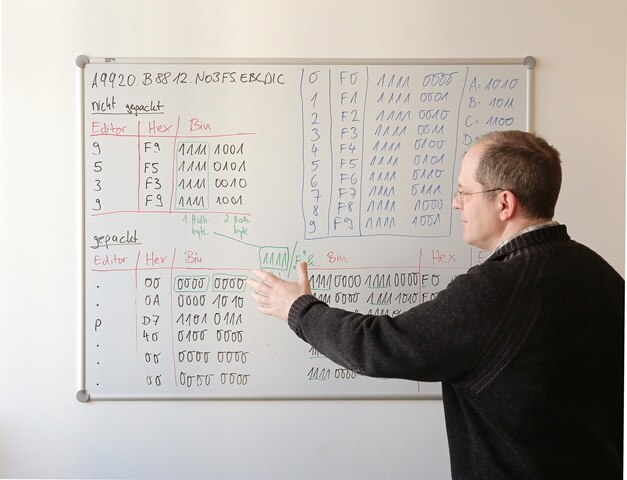 A9920.B8812.N03F5.EBCDIC
nicht gepackt
Editor Hex Bin
9 F9 1111 1001
5 F5 1111 0101
3 F3 1111 0010
9 F9 1111 1001
1. Halbbyte 2. Halbbyte
0 F0 1111 0000
1 F1 1111 0001
2 F2 1111 0010
3 F3 1111 0011
4 F4 1111 0100
5 F5 1111 0101
6 F6 1111 0110
7 F7 1111 0111
8 F8 1111 1000
9 F9 1111 1001
A: 1010
B: 1011
C: 1100
D:
gepackt
1111 / "F" &
Editor Hex Bin Bin Hex E
. 00 0000 0000 1111 0000 1111 0000 F0
. 0A 0000 1010 0000 1111 1010 F0
P D7 1101 0111
. 40 0100 0000
. 00 0000 0000
. 00 0000 0000 1111 0000